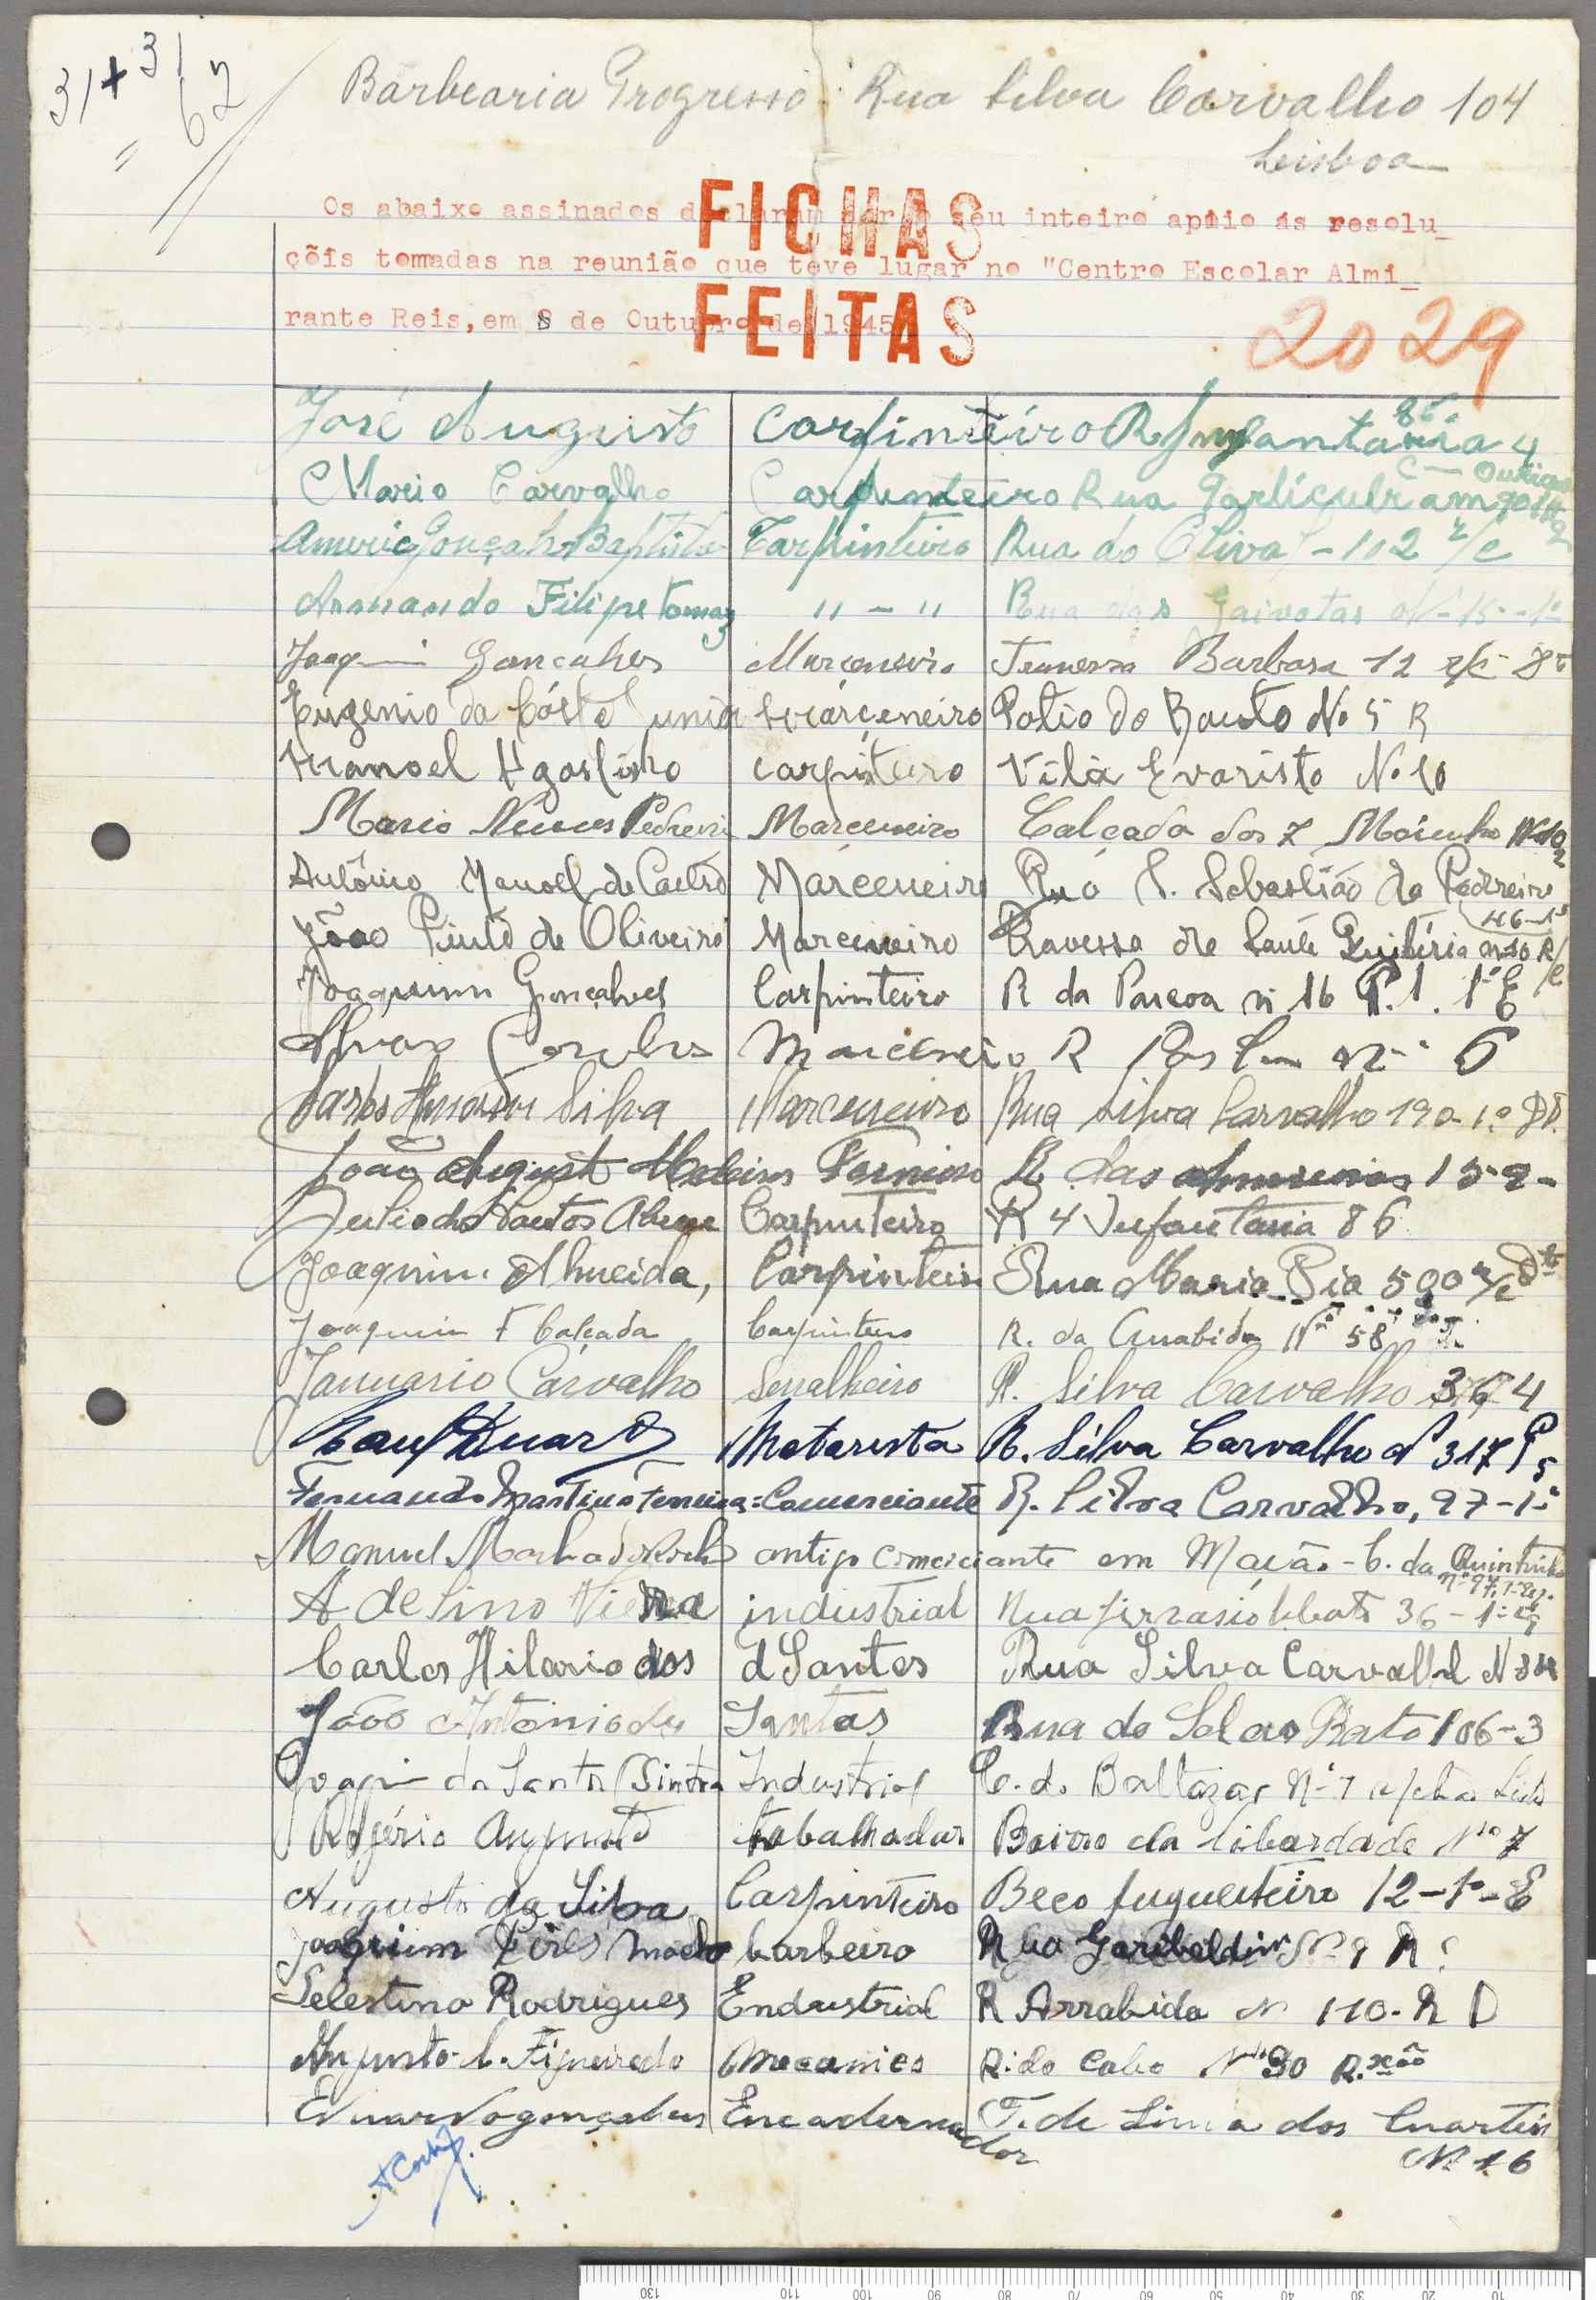 31+31
= 62
Barbearia Progresso Rua Silva Carvalho 104
Lisboa
Os abaixo assinados declaram dar o seu inteiro apoio ás resolu_
çõis tomadas na reunião que teve lugar no "Centro Escolar Almi_
rante Reis, em 8 de Outubro de 1945
FICHAS
FEITAS
2029
José Augusto Carpinteiro R Infantaria 4 86
Mario Carvalho Carpinteiro Rua Particular
Americo Gonçalves Baptista Carpinteiro Rua do Olival - 102 r/c
Armando Filipe Tomaz " - " Rua das Gaivotas Nº 15 - 1º
Joaquim Gonçalves Marceneiro Travessa Barbosa 12 r/c Dto
Eugenio da Cósta Marceneiro Patio do Bouto No 5 R
Manoel Agostinho carpinteiro Vila Evaristo No 10
Mario Neves Pedreira Marceneiro Calçada dos 7 Moinho
António Manoel de Castro Marceneiro Rua S. Sebastião da Pedreira
46-1º
João Pinto de Oliveira Marceneiro Travessa de Santa Quitéria nº 10 R/c
Joaquim Gonçalves Carpinteiro R da Pascoa nº 16 P. 1. 1º E
Alvaro Marceneiro R nº 6
Carlos Silva Marceneiro Rua Silva Carvalho 190 1º Dt.
João Augusto R das Amoreiras 15-2-
Julio dos Santos Carpinteiro R 4 Infantaria 86
Joaquim Almeida, Carpinteiro Rua Maria Pia 500 r/c Dto
Joaquim F Calçada Carpinteiro R. da Arrabida Nº 58
Januario Carvalho Serralheiro R. Silva Carvalho 4
Raul Duarte Motorista R. Silva Carvalho nº 317 P 5
Fernando Martins Ferreira = Comerciante R. Silva Carvalho, 97-1º
Manuel Machado antigo comerciante em Mação - C. da Quintinha
nº 97, 1º Eq.
Adelino Vieira industrial Rua 36 - 1º
Carlos Hilario dos d Santos Rua Silva Carvalhl N
João Antonio dos Santos Rua do Sol ao Rato 106-3
Joaqim da Santa Sintra Industrial C. do Baltazar Nº 7
Rogério Augusto trabalhador Bairro da libardade Nº 7
Augusto da Silva Carpinteiro Beco fugueteiro 12-1º-E
Joaquim Pires barbeiro Rua Garibaldim Nº 9 R
Selestino Rodrigues Endustrial R Arrabida N 110- R D
Augusto C. Figueiredo Mecanico R. do Cabo Nº 30 R.
Eduardo gonçalves Encadernador T. de Lima dos Cuarteis
Nº 16